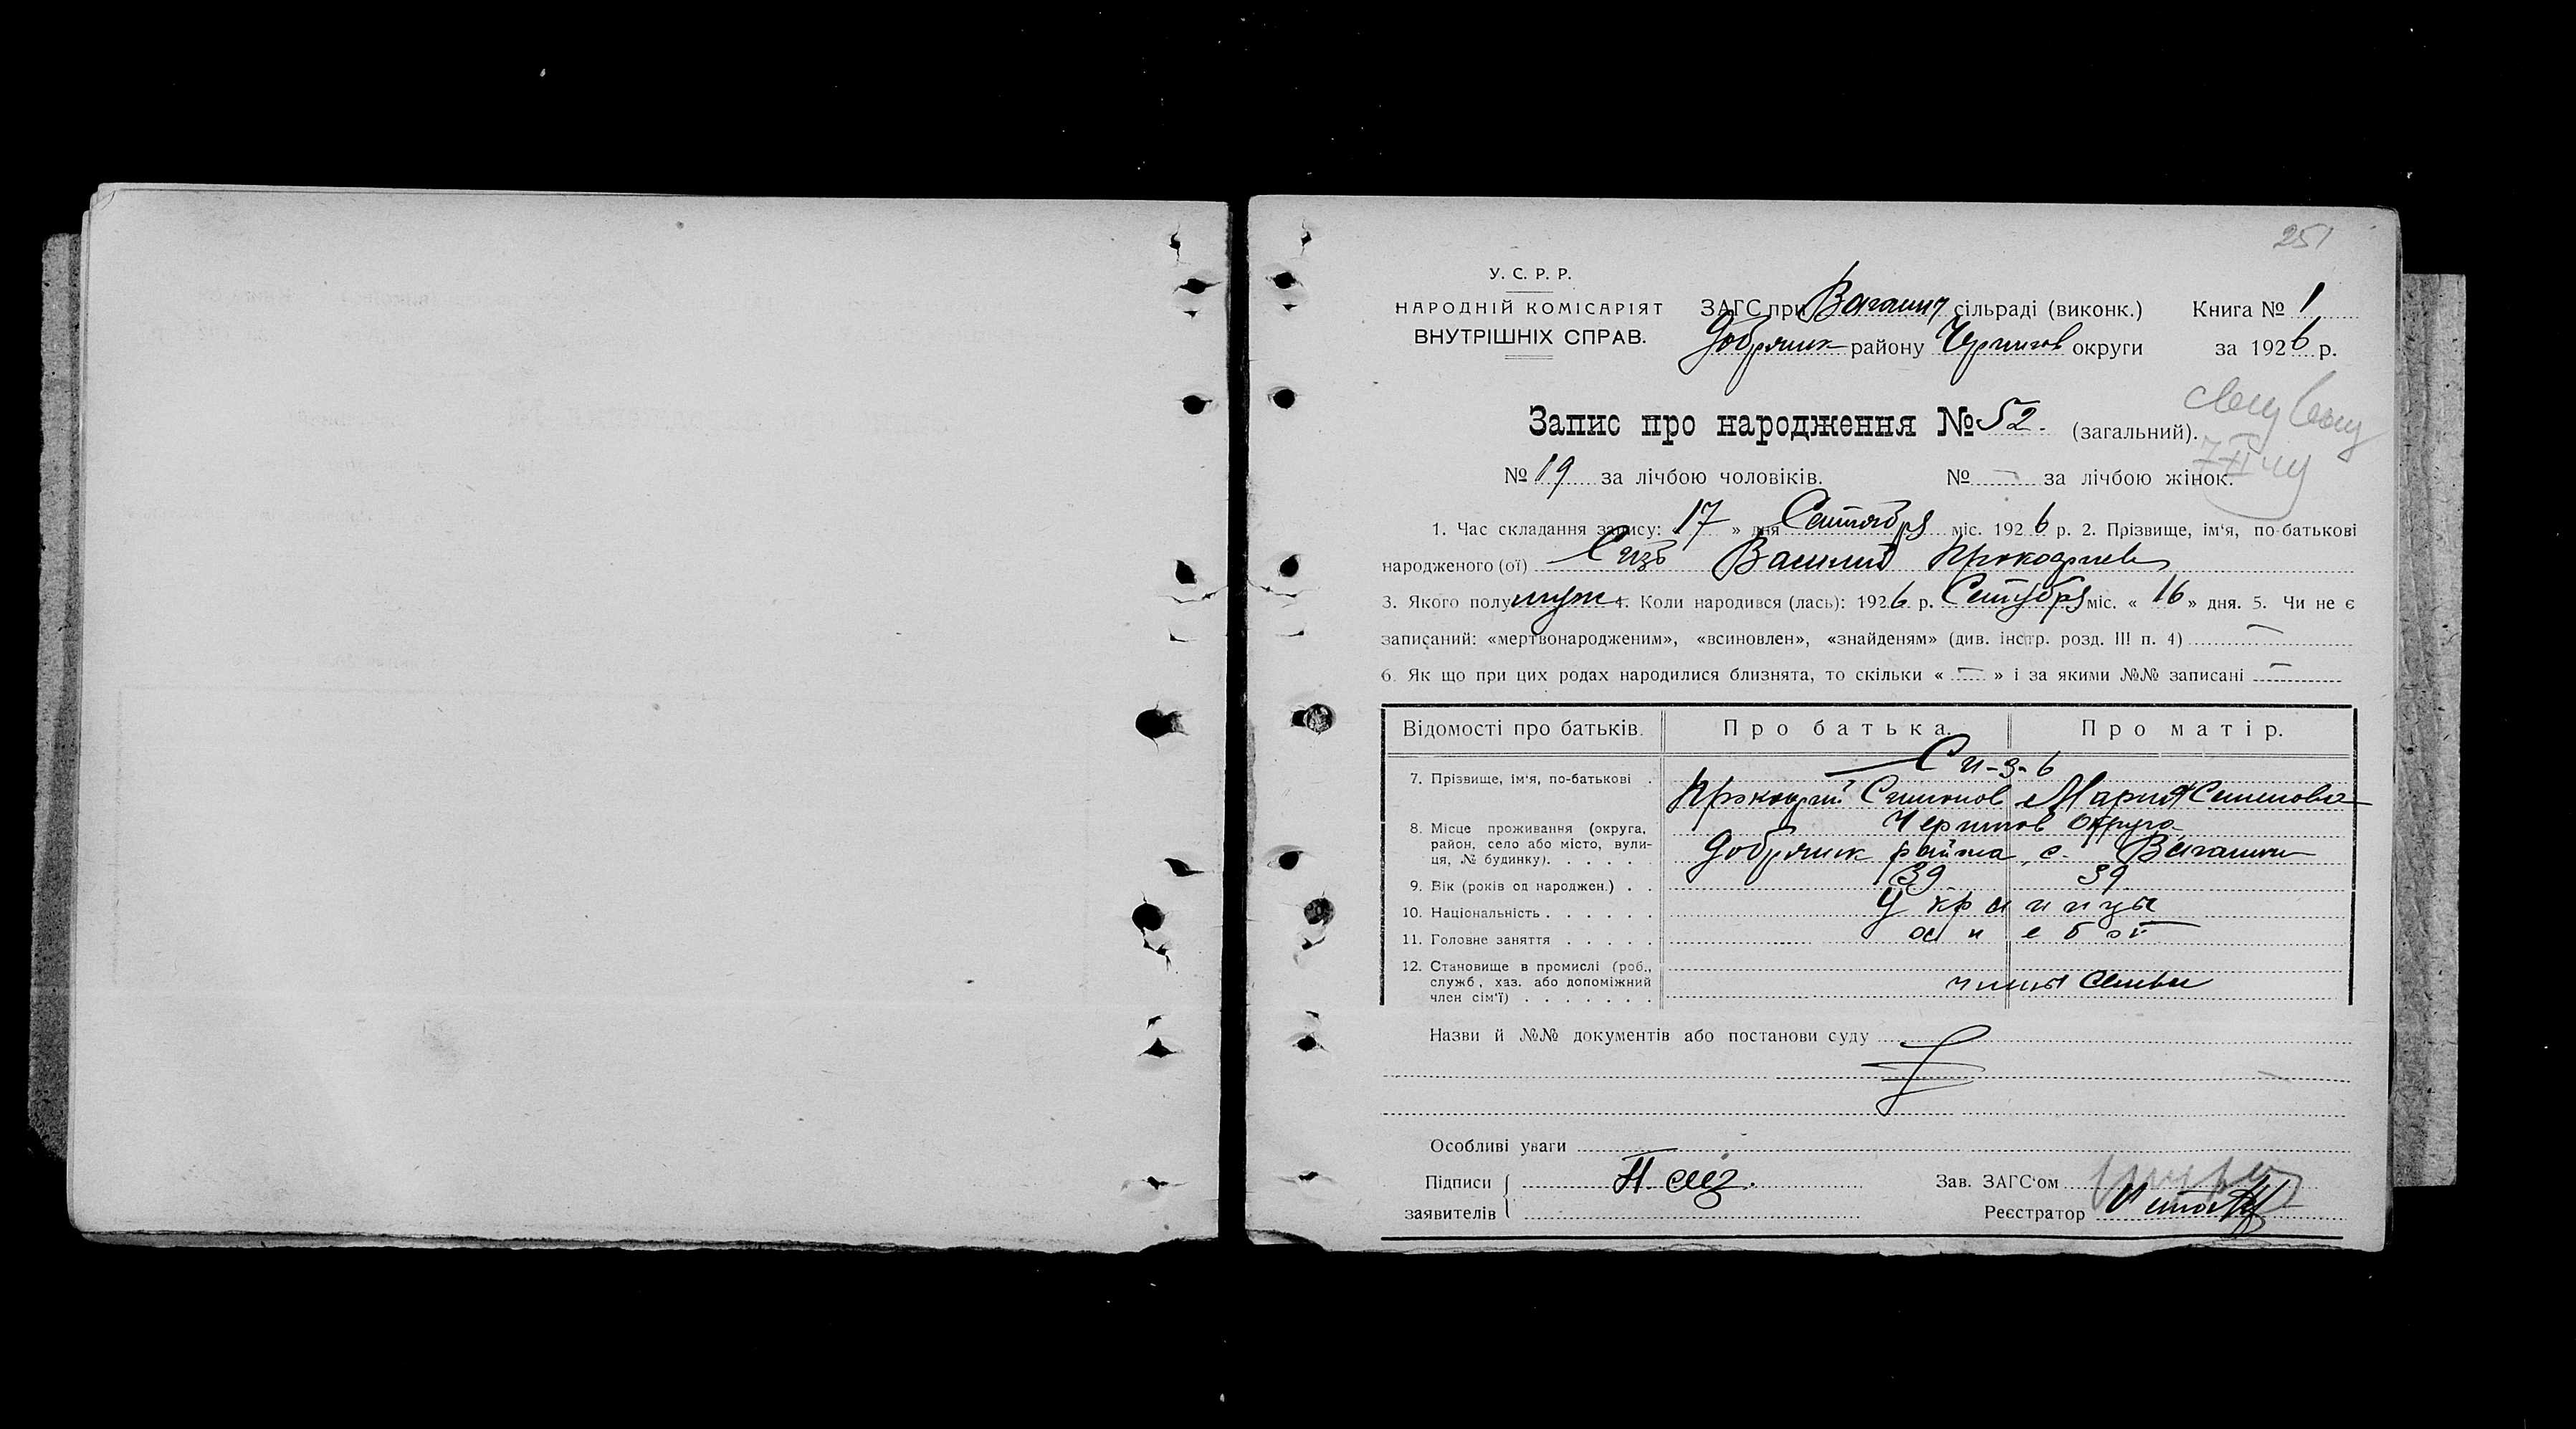 251
У. С. Р. Р.
НАРОДНІЙ КОМІСАРІЯТ
ВНУТРІШНІХ СПРАВ.
ЗАГС при Ваганич сільраді (виконк.)
Добрянск району Чернигов округи
Книга № 1
за 1926 р.
Запис про народження № 52. (загальний).
№ 19 за лічбою чоловіків. № — за лічбою жінок.
1. Час складання запису: « 17 » дня Сентября міс. 1926 р. 2. Прізвище, ім'я, по-батькові
народженого (ої) Сизь Василий Прокофиев
3. Якого полу муж 4. Коли народився (лась): 1926 р. Сентября міс. « 16 » дня. 5. Чи не є
записаний: «мертвонародженим», «всиновлен», «знайденям» (див. інстр. розд. III п. 4) —
6. Як що при цих родах народилися близнята, то скільки « — » і за якими №№ записані —
Відомості про батьків. Про батька. Про матір.
7. Прізвище, ім'я, по-батькові . С и-з-ь
Прокофий Симонов Мария Семенова
8. Місце проживання (округа, район, село або місто, вулиця, № будинку). . . . . Чернигов округа
Добрянск района, с. Ваганичи
9. Вік (років од народжен.) . . 39 39
10. Національність . . . . . . Украинцы
11. Головне заняття . . . . .
12. Становище в промислі (роб., служб, хаз. або допоміжний член сім'ї) . . . . . . . члены семьи
Назви й №№ документів або постанови суду
Особливі уваги
Підписи
заявителів
Зав. ЗАГС'ом
Реєстратор